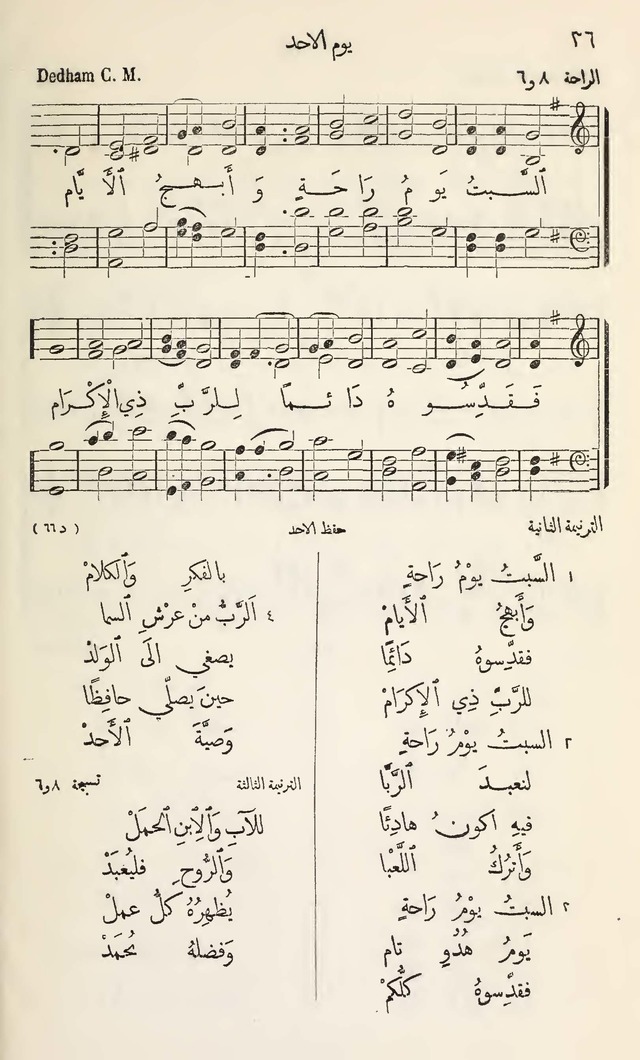 ٢٦
يوم الاحد
الراحة ٨ و٦
Dedham C. M.
اَلسَّبتُ يَوْمُ رَاحَةٍ وَ أَبهجُ ٱلْأَيَّام
فَقَدِّسُوهُ دَائِمًا لِلرَّبِّ ذِي ٱلْإِكْرَام
الترنيمة الثانية
حفظ الاحد
( د ٦٦ )
١ السَّبتُ يوْمُ رَاحةٍ
وَأَبهجُ ٱلأَيَامْ
فقدِّسوهُ دَائِمًا
للرَّبِّ ذِي ٱلإِكرَامْ
٢ السبتُ يوْمُ رَاحةٍ
لنعبدَ ٱلرَّبَّا
فيهِ اكونُ هادِئًا
وَأَترُكُ ٱللَّعْبا
٢ السبتُ يوْمُ رَاحةٍ
يَومُ هُدُوٍ تام
فقدِّسوهُ كلُّكمْ
بالفكرِ وَٱلكلامْ
٤ اَلرَّبُّ منْ عرْشِ ٱلسما
يصغي الَى ٱلوَلدْ
حينَ يصلّي حافِظًا
وَصيَّةَ ٱلأَحدْ
الترنيمة الثالثة
تسبحة ٨ و٦
للآبِ وَٱلِٱبنِ ٱلحملْ
وَٱلرُّوحِ فليُعْبَدْ
يُظهِرُهُ كلُّ عملْ
وَفضلهُ يُحمَدْ